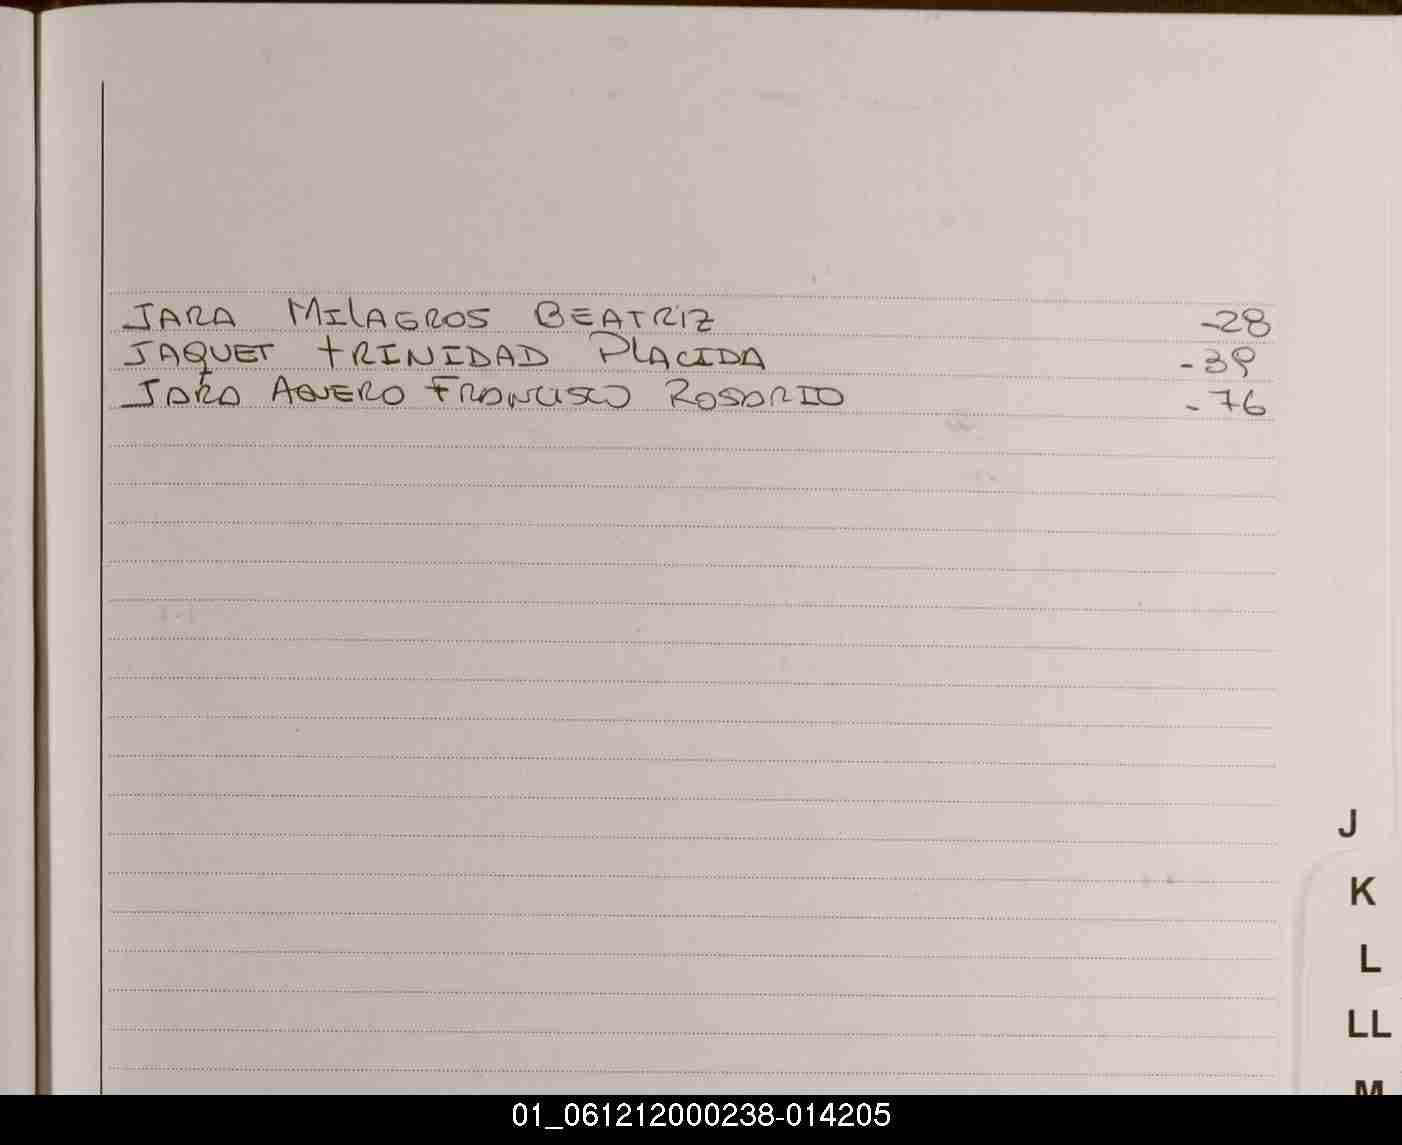 JARA MILAGROS BEATRIZ -28
JAQUET TRINIDAD PLACIDA -39
JARA AGUERO FRANCISCO ROSARIO -76
J
K
L
LL
M
01_061212000238-014205